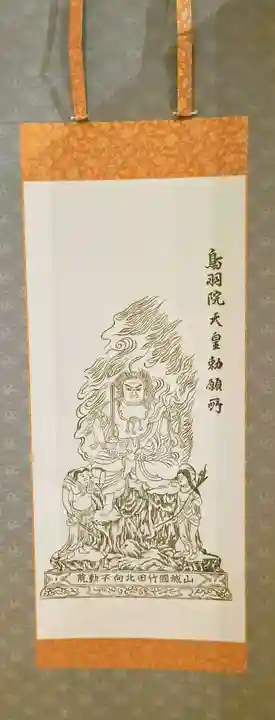 鳥羽院天皇勅願所
山城國竹田北向不動院